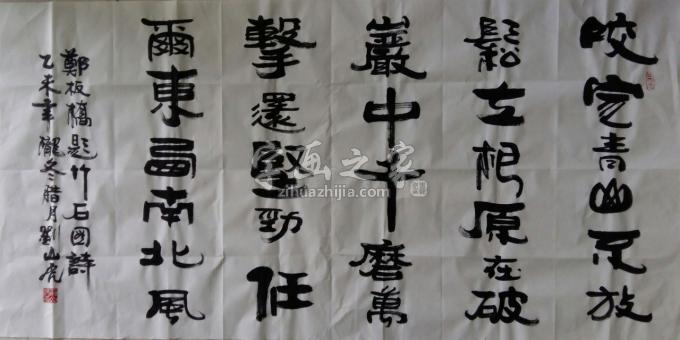 咬定青山不放
鬆立根原在破
巖中千磨萬
擊還堅勁任
爾東西南北風
鄭板橋題竹石圖詩
乙未年隆冬腊月劉山虎
字画之家
zihuazhijia.com